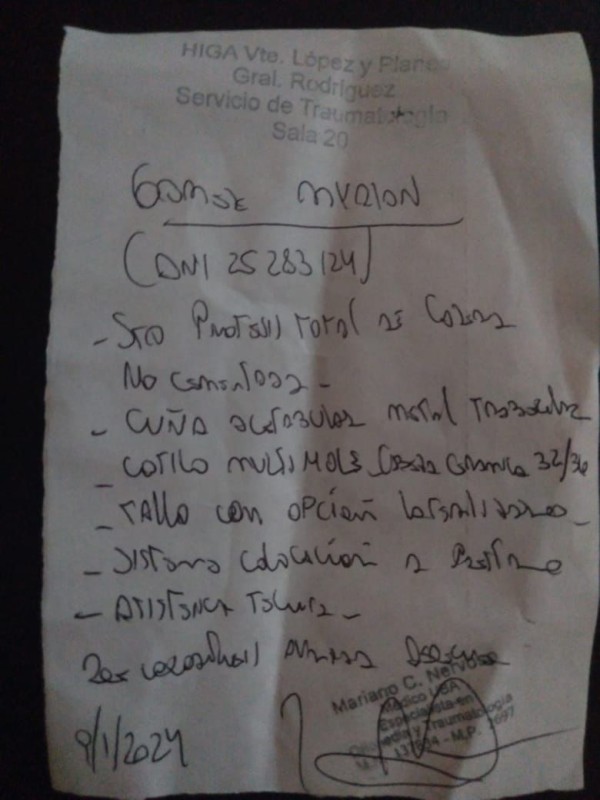 HIGA Vte. López y Planes
Gral. Rodriguez
Servicio de Traumatología
Sala 20
MYRIAN
(DNI 25 283 124)
- Sto Protesis Total de Cadera
No cementada -
- CUÑA acetabular metal Trabecular
- COTILO MULTI HOLE Cabeza Ceramica 32/36
- TALLO con opción lateralizado -
- Sistema colocación
- Asistencia Tecnica -
9/1/2024
Mariano C.
Médico UBA
Especialista en
Ortopedia y Traumatología